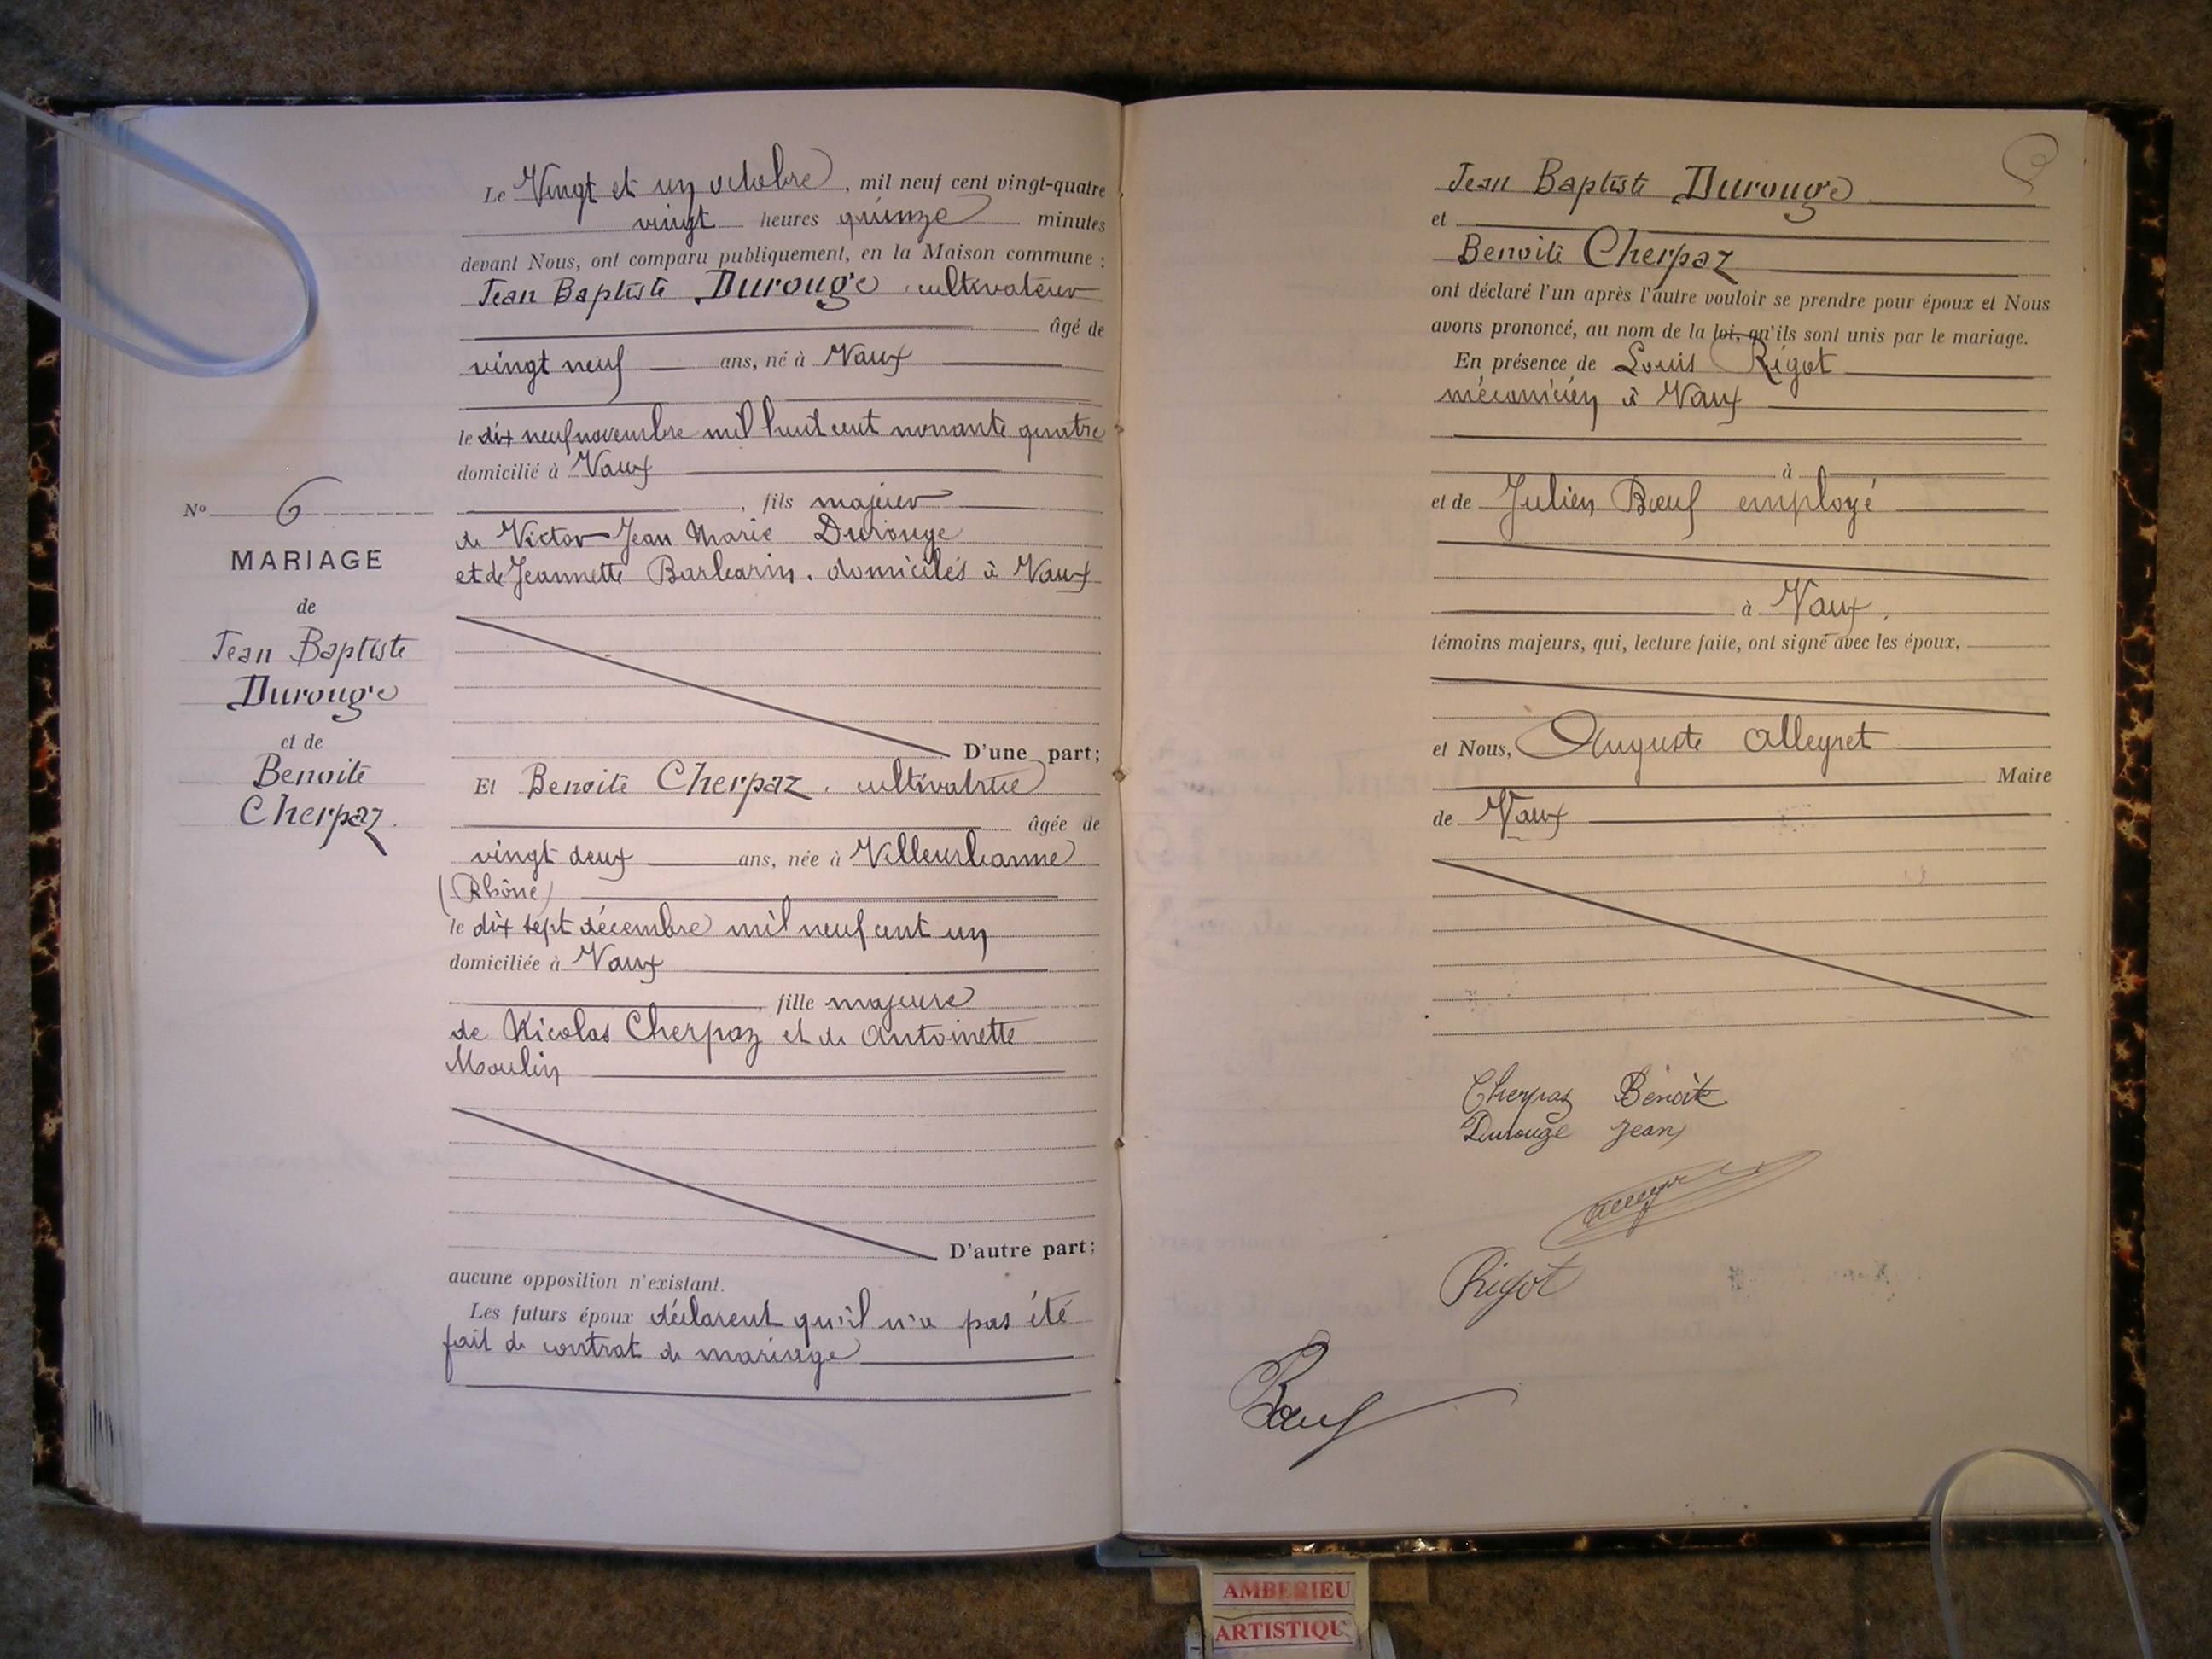 Le Vingt et un octobre, mil neuf cent vingt-quatre
vingt heures quinze minutes
devant Nous, ont comparu publiquement, en la Maison commune :
Jean Baptiste Durouge, cultivateur
âgé de
vingt neuf ans, né à Vaux
le dix neuf novembre mil huit cent nonante quatre
domicilié à Vaux
, fils majeur
de Victor Jean Marie Durouge
et de Jeannette Barbarin, domiciliés à Vaux
D'une part;
Et Benoite Cherpaz, cultivatrice
âgée de
vingt deux ans, née à Villeurbanne
(Rhône)
le dix sept décembre mil neuf cent un
domiciliée à Vaux
, fille majeure
de Nicolas Cherpaz et de Antoinette
Moulin
D'autre part;
aucune opposition n'existant.
Les futurs époux déclarent qu'il n'a pas été
fait de contrat de mariage
No 6
MARIAGE
de
Jean Baptiste
Durouge
et de
Benoite
Cherpaz.
Jean Baptiste Durouge
et
Benoite Cherpaz
ont déclaré l'un après l'autre vouloir se prendre pour époux et Nous
avons prononcé, au nom de la loi, qu'ils sont unis par le mariage.
En présence de Louis Rigot
mécanicien à Vaux
à
et de Julien Bœuf employé
à Vaux,
témoins majeurs, qui, lecture faite, ont signé avec les époux,
et Nous, Auguste Alleyret
Maire
de Vaux
Cherpaz Benoite
Durouge Jean
Rigot
Bœuf
AMBERIEU
ARTISTIQU